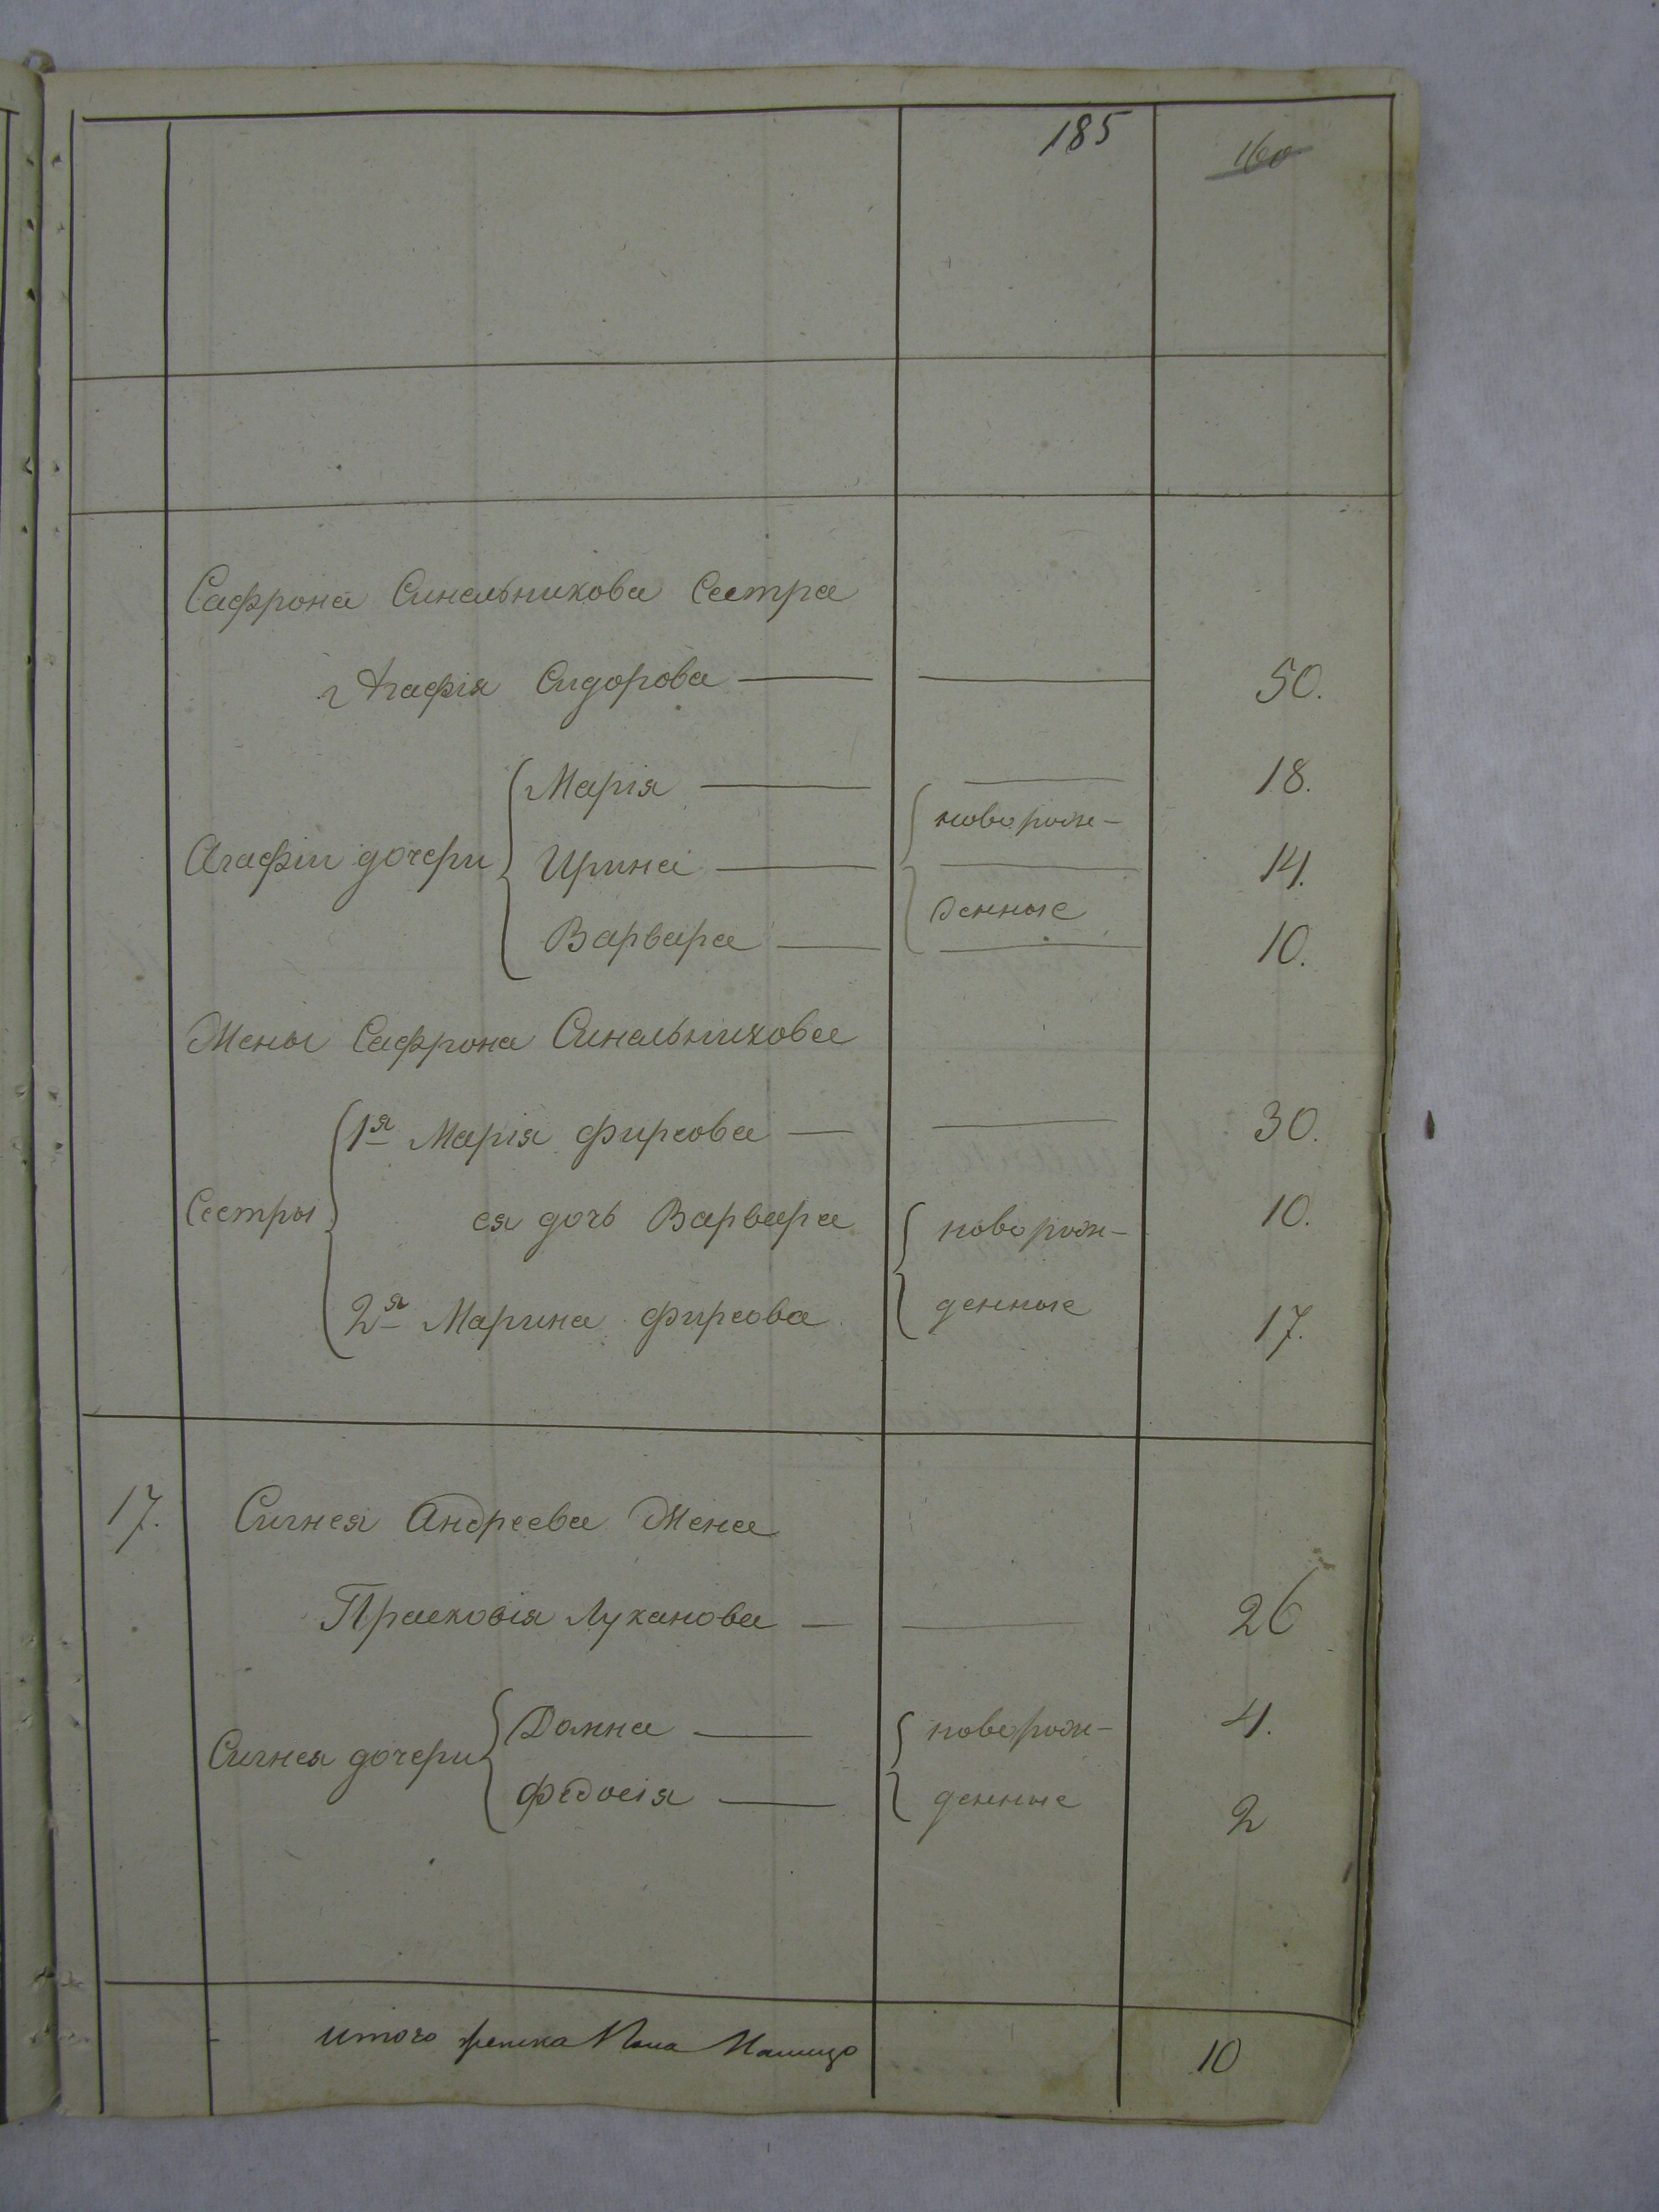 185 160
Сафрона Синельникова Сестра
Агафія Сидорова — — 50.
Марія — — 18.
новорож-
Агафіи дочери Ирина — — 14.
денные
Варвара — — 10.
Жены Сафрона Синельникова
1я Марія Фирсова — — 30.
Сестры ея дочь Варвара новорож- 10.
2я Марина Фирсова денные 17.
17. Сигнея Андреева Жена
Прасковія Луканова — — 26
Сигнея дочери Домна — новорож- 4.
Федосія — денные 2
итого женска Пола 10